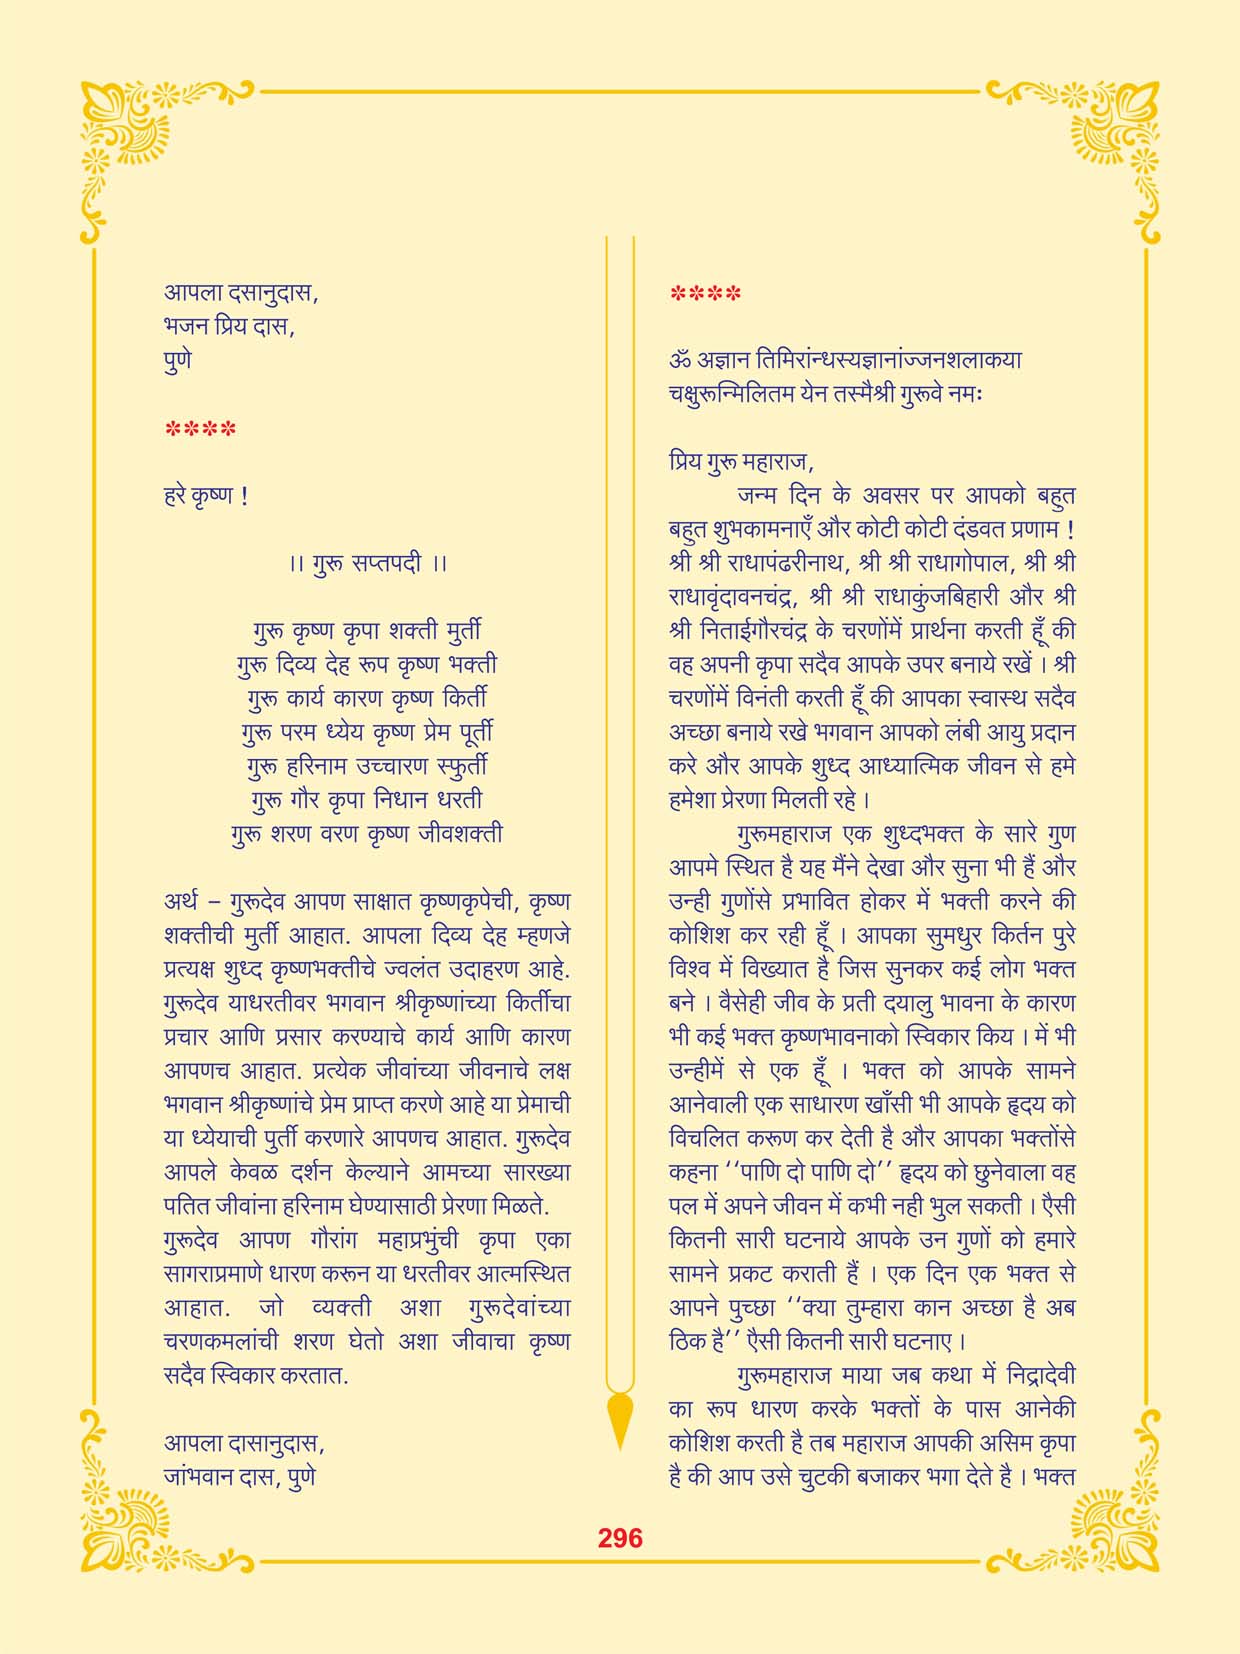 आपला दसानुदास,
भजन प्रिय दास,
पुणे
****
हरे कृष्ण !
।। गुरू सप्तपदी ।।
गुरू कृष्ण कृपा शक्ती मुर्ती
गुरू दिव्य देह रूप कृष्ण भक्ती
गुरू कार्य कारण कृष्ण किर्ती
गुरू परम ध्येय कृष्ण प्रेम पूर्ती
गुरू हरिनाम उच्चारण स्फुर्ती
गुरू गौर कृपा निधान धरती
गुरू शरण वरण कृष्ण जीवशक्ती
अर्थ – गुरूदेव आपण साक्षात कृष्णकृपेची, कृष्ण
शक्तीची मुर्ती आहात. आपला दिव्य देह म्हणजे
प्रत्यक्ष शुध्द कृष्णभक्तीचे ज्वलंत उदाहरण आहे.
गुरूदेव याधरतीवर भगवान श्रीकृष्णांच्या किर्तीचा
प्रचार आणि प्रसार करण्याचे कार्य आणि कारण
आपणच आहात. प्रत्येक जीवांच्या जीवनाचे लक्ष
भगवान श्रीकृष्णांचे प्रेम प्राप्त करणे आहे या प्रेमाची
या ध्येयाची पुर्ती करणारे आपणच आहात. गुरूदेव
आपले केवळ दर्शन केल्याने आमच्या सारख्या
पतित जीवांना हरिनाम घेण्यासाठी प्रेरणा मिळते.
गुरूदेव आपण गौरांग महाप्रभुंची कृपा एका
सागराप्रमाणे धारण करून या धरतीवर आत्मस्थित
आहात. जो व्यक्ती अशा गुरूदेवांच्या
चरणकमलांची शरण घेतो अशा जीवाचा कृष्ण
सदैव स्विकार करतात.
आपला दासानुदास,
जांभवान दास, पुणे
****
ॐ अज्ञान तिमिरांन्धस्यज्ञानांज्जनशलाकया
चक्षुरून्मिलितम येन तस्मैश्री गुरूवे नमः
प्रिय गुरू महाराज,
जन्म दिन के अवसर पर आपको बहुत
बहुत शुभकामनाएँ और कोटी कोटी दंडवत प्रणाम !
श्री श्री राधापंढरीनाथ, श्री श्री राधागोपाल, श्री श्री
राधावृंदावनचंद्र, श्री श्री राधाकुंजबिहारी और श्री
श्री निताईगौरचंद्र के चरणोंमें प्रार्थना करती हूँ की
वह अपनी कृपा सदैव आपके उपर बनाये रखें । श्री
चरणोंमें विनंती करती हूँ की आपका स्वास्थ सदैव
अच्छा बनाये रखे भगवान आपको लंबी आयु प्रदान
करे और आपके शुध्द आध्यात्मिक जीवन से हमे
हमेशा प्रेरणा मिलती रहे ।
गुरूमहाराज एक शुध्दभक्त के सारे गुण
आपमे स्थित है यह मैंने देखा और सुना भी हैं और
उन्ही गुणोंसे प्रभावित होकर में भक्ती करने की
कोशिश कर रही हूँ । आपका सुमधुर किर्तन पुरे
विश्व में विख्यात है जिस सुनकर कई लोग भक्त
बने । वैसेही जीव के प्रती दयालु भावना के कारण
भी कई भक्त कृष्णभावनाको स्विकार किय । में भी
उन्हीमें से एक हूँ । भक्त को आपके सामने
आनेवाली एक साधारण खाँसी भी आपके हृदय को
विचलित करूण कर देती है और आपका भक्तोंसे
कहना ‘‘पाणि दो पाणि दो’’ हृदय को छुनेवाला वह
पल में अपने जीवन में कभी नही भुल सकती । एैसी
कितनी सारी घटनाये आपके उन गुणों को हमारे
सामने प्रकट कराती हैं । एक दिन एक भक्त से
आपने पुच्छा ‘‘क्या तुम्हारा कान अच्छा है अब
ठिक है’’ एैसी कितनी सारी घटनाए ।
गुरूमहाराज माया जब कथा में निद्रादेवी
का रूप धारण करके भक्तों के पास आनेकी
कोशिश करती है तब महाराज आपकी असिम कृपा
है की आप उसे चुटकी बजाकर भगा देते है । भक्त
296